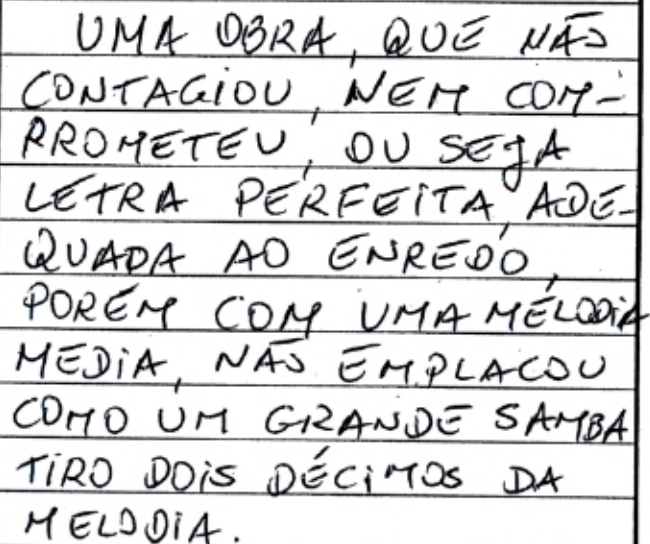 UMA OBRA, QUE NÃO
CONTAGIOU, NEM COM-
PROMETEU, OU SEJA
LETRA PERFEITA, ADE-
QUADA AO ENREDO,
PORÉM COM UMA MELODIA
MEDIA, NÃO EMPLACOU
COMO UM GRANDE SAMBA
TIRO DOIS DÉCIMOS DA
MELODIA.